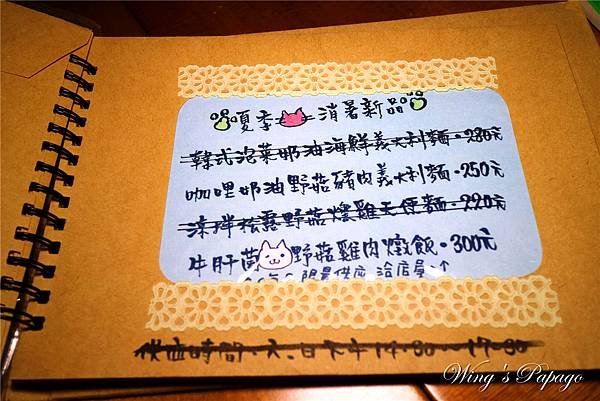 夏季 消暑新品
韓式泡菜奶油海鮮義大利麵·280元
咖哩奶油野菇豬肉義大利麵·250元
涼拌松露野菇燻雞天使麵·220元
牛肝菌 野菇雞肉燉飯·300元
限量供應 洽店員
供應時間·六、日下午14:30~17:30
Wing's Papago